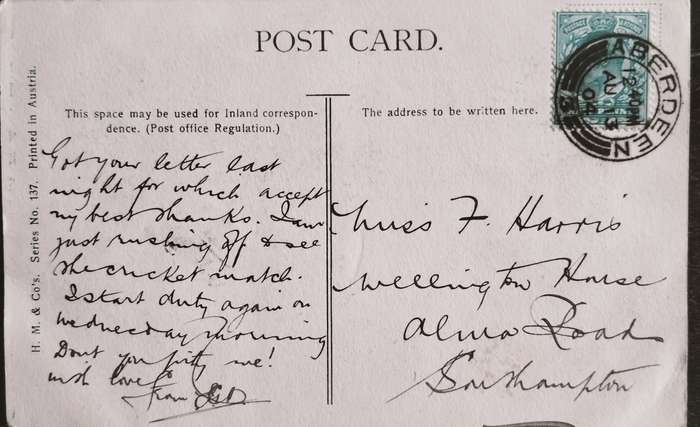 POST CARD.
ABERDEEN
12.40PM
AU
04
3
H. M. & Co's. Series No. 137. Printed in Austria.
This space may be used for Inland correspon-
dence. (Post office Regulation.)
Got your letter last
night for which accept
my best thanks. I am
just rushing off to see
the cricket match.
I start duty again on
Wednesday morning
Dont you pity me!
with love
from
The address to be written here.
Miss F. Harris
Wellington House
Alma Road
Southampton